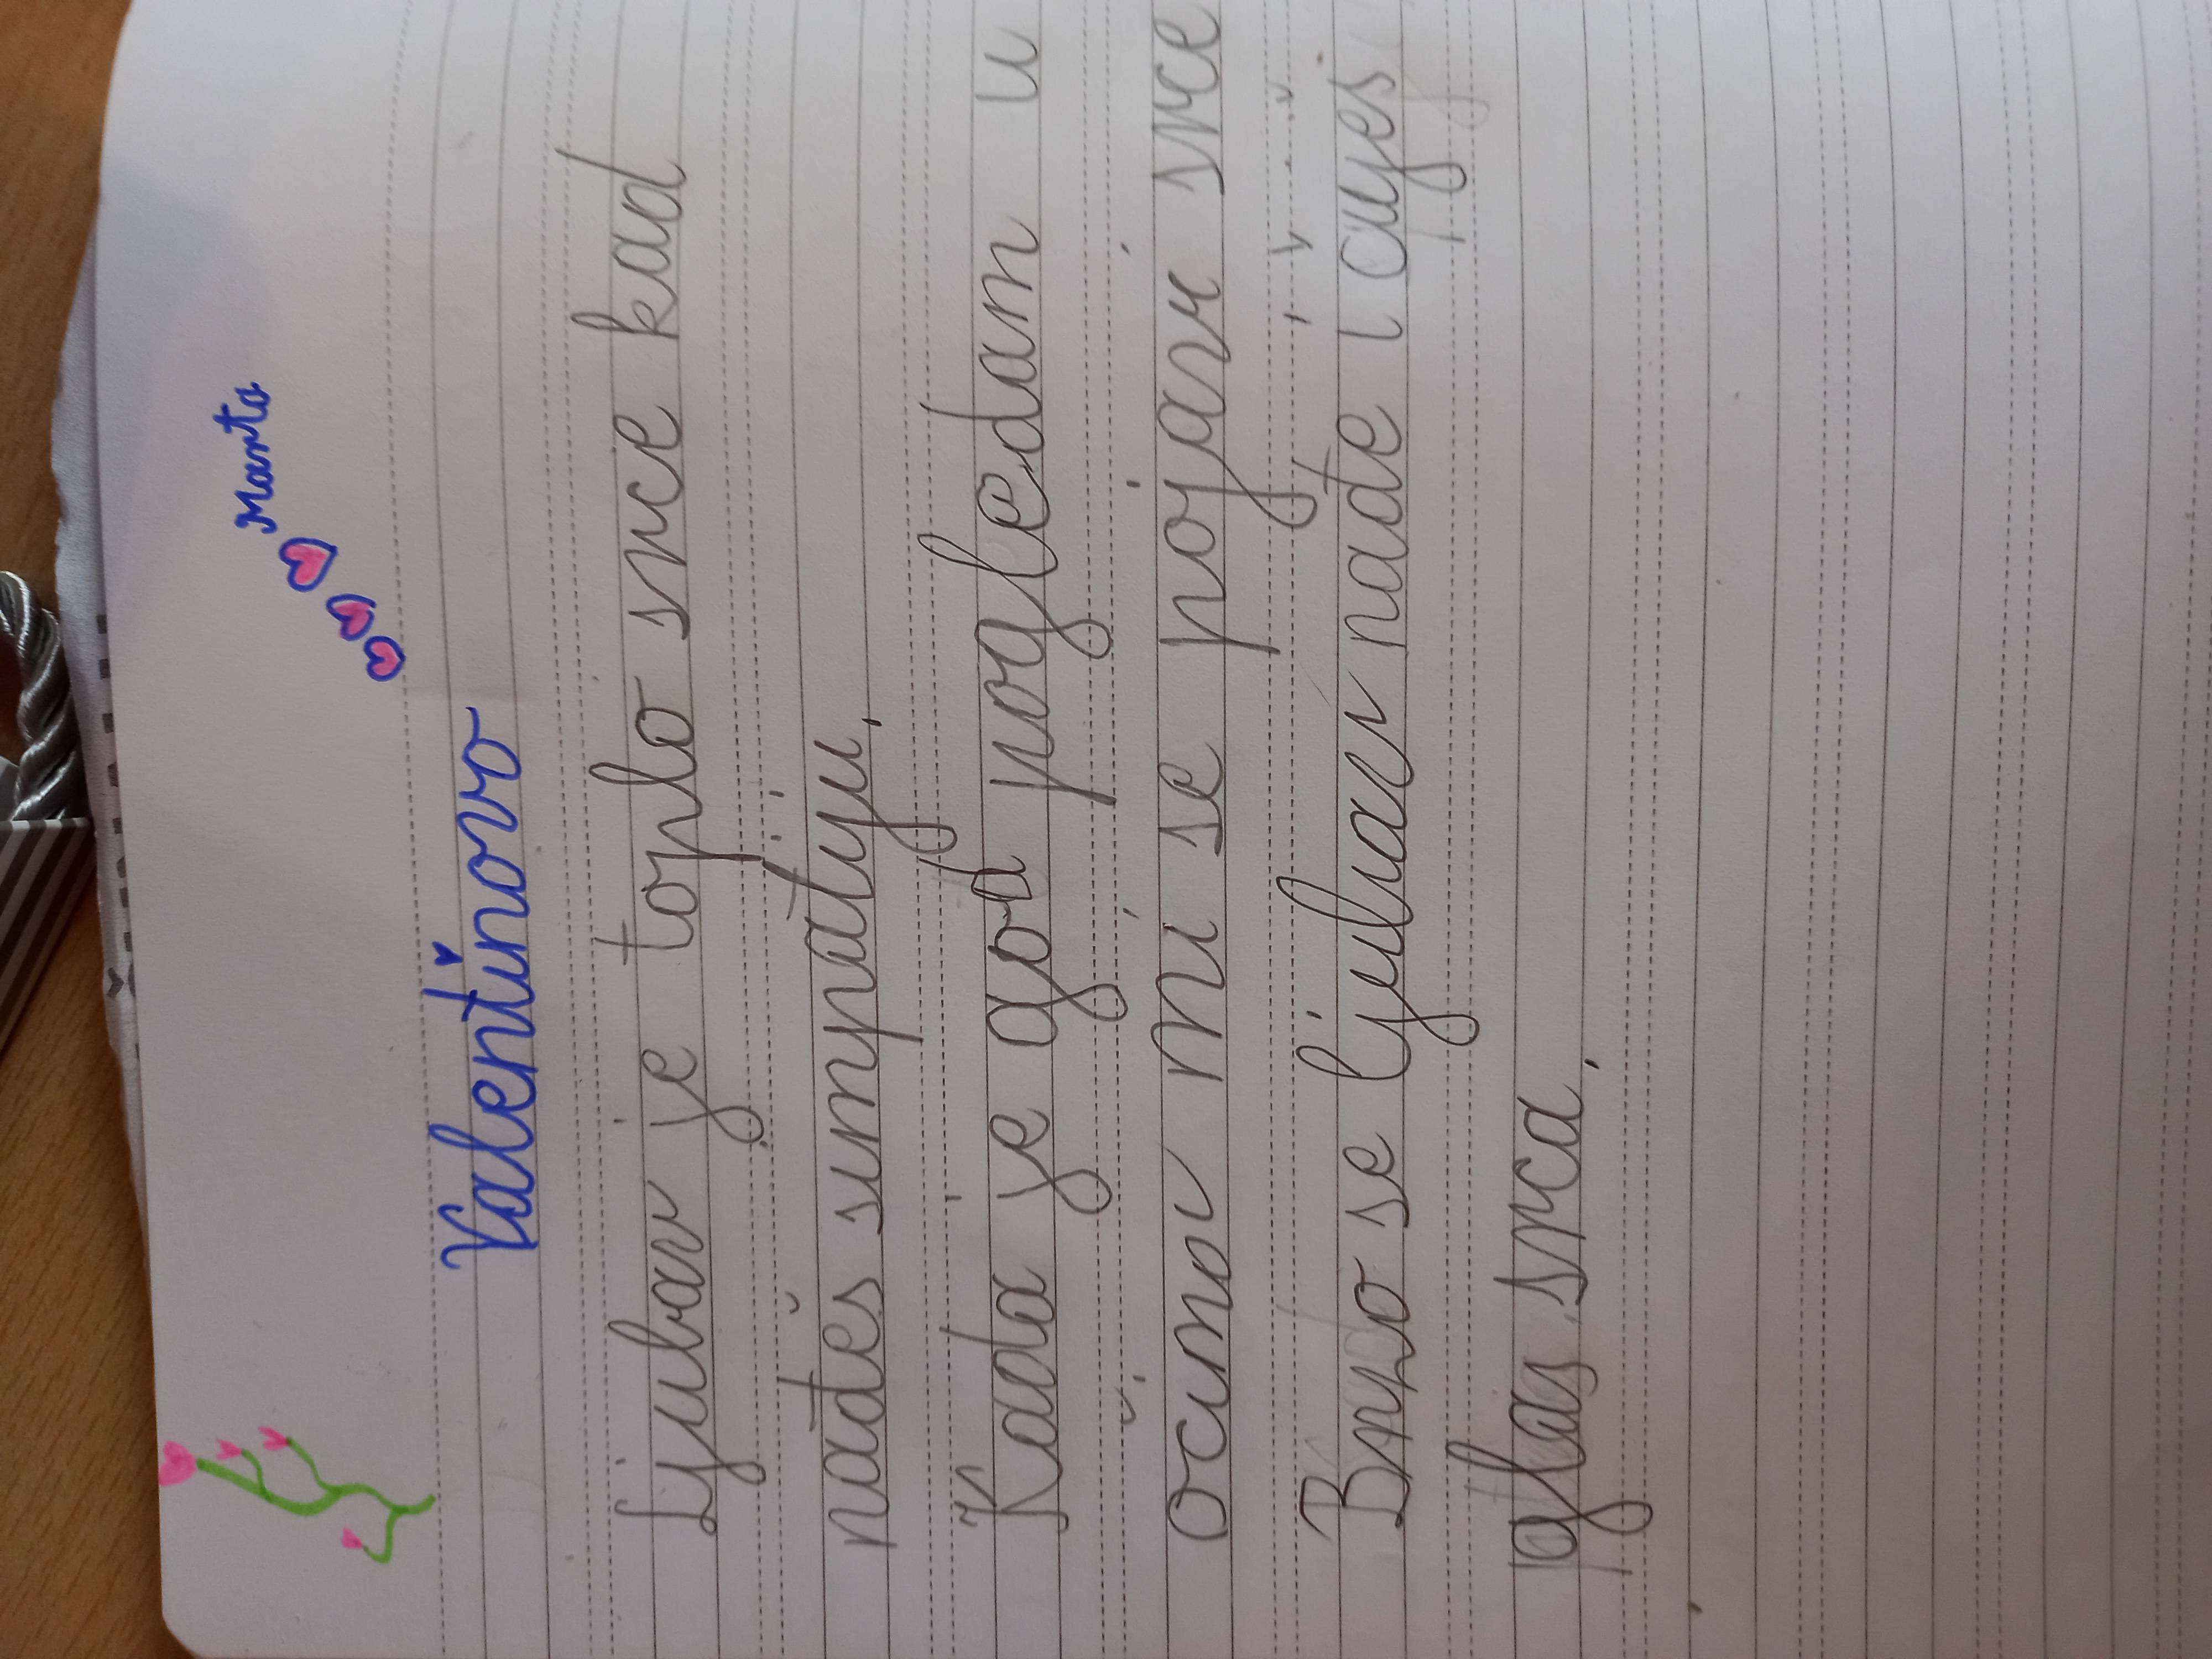 Marta
Valentinovo
Ljubav je toplo srce kad
nađeš simpatiju.
Kada je god pogledam u
očima mi se pojavi srce
Brzo se ljubav nađe i čuješ
glas srca.